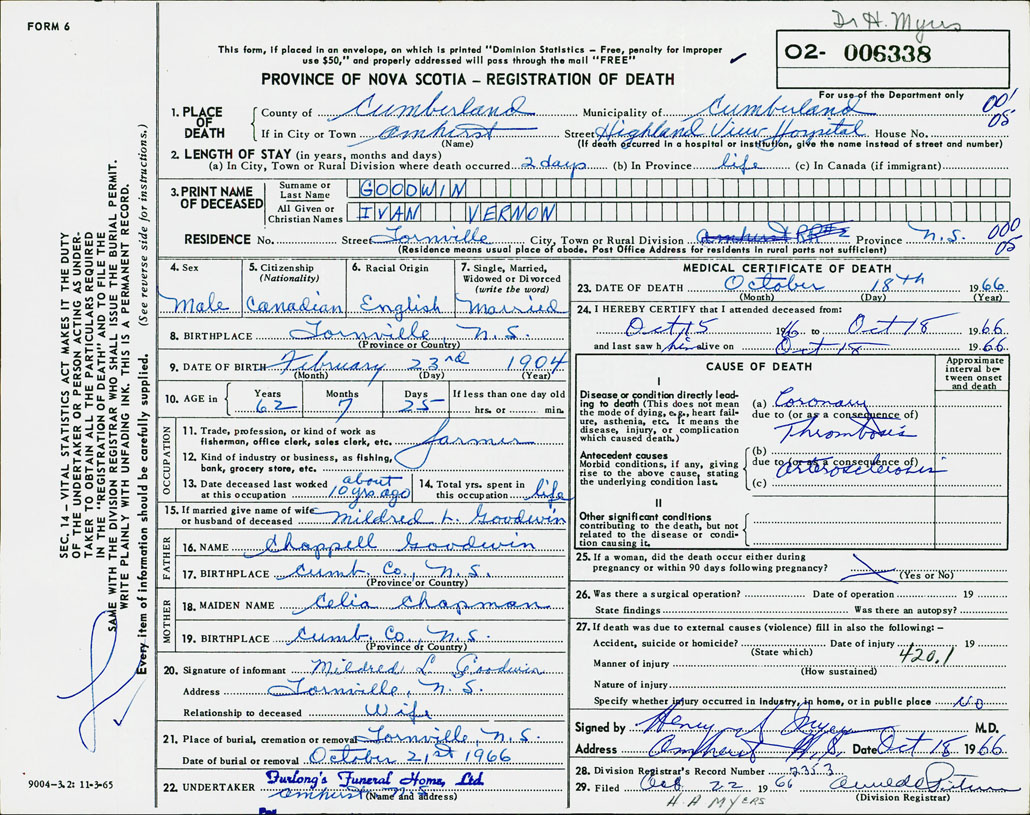 Dr H. Myers
FORM 6
This form, if placed in an envelope, on which is printed "Dominion Statistics – Free, penalty for improper
use $50," and properly addressed will pass through the mail "FREE"
02- 006338
For use of the Department only
PROVINCE OF NOVA SCOTIA – REGISTRATION OF DEATH
001
05
1. PLACE OF DEATH County of Cumberland Municipality of Cumberland
If in City or Town Amherst Street Highland View Hospital House No.
(Name) (If death occurred in a hospital or institution, give the name instead of street and number)
2. LENGTH OF STAY (in years, months and days)
(a) In City, Town or Rural Division where death occurred 2 days (b) In Province life (c) In Canada (if immigrant)
3. PRINT NAME OF DECEASED Surname or Last Name GOODWIN
All Given or Christian Names IVAN VERNON
000
05
RESIDENCE No. Street Tornville City, Town or Rural Division Amherst RR#2 Province N.S.
(Residence means usual place of abode. Post Office Address for residents in rural parts not sufficient)
4. Sex Male
5. Citizenship (Nationality) Canadian
6. Racial Origin English
7. Single, Married, Widowed or Divorced (write the word) Married
8. BIRTHPLACE Tornville N.S.
(Province or Country)
9. DATE OF BIRTH February 23rd 1904
(Month) (Day) (Year)
10. AGE in Years 62 Months 7 Days 25 If less than one day old hrs. or min.
OCCUPATION
11. Trade, profession, or kind of work as fisherman, office clerk, sales clerk, etc. farmer
12. Kind of industry or business, as fishing, bank, grocery store, etc.
13. Date deceased last worked at this occupation about 10 yrs. ago
14. Total yrs. spent in this occupation life
15. If married give name of wife or husband of deceased Mildred L. Goodwin
FATHER
16. NAME Chappell Goodwin
17. BIRTHPLACE Cumb. Co., N.S.
(Province or Country)
MOTHER
18. MAIDEN NAME Celia Chapman
19. BIRTHPLACE Cumb. Co. N.S.
(Province or Country)
20. Signature of informant Mildred L Goodwin
Address Tornville, N.S.
Relationship to deceased Wife
21. Place of burial, cremation or removal Tornville, N.S.
Date of burial or removal October 21st 1966
22. UNDERTAKER Furlong's Funeral Home, Ltd.
Amherst N.S.
(Name and address)
MEDICAL CERTIFICATE OF DEATH
23. DATE OF DEATH October 18th 1966
(Month) (Day) (Year)
24. I HEREBY CERTIFY that I attended deceased from:
Oct 15 1966 to Oct 18 1966
and last saw him alive on Oct 18 1966.
CAUSE OF DEATH
Approximate interval between onset and death
I
Disease or condition directly leading to death (This does not mean the mode of dying, e.g., heart failure, asthenia, etc. It means the disease, injury, or complication which caused death.)
(a) Coronary
due to (or as a consequence of)
Thrombosis
Antecedent causes
Morbid conditions, if any, giving rise to the above cause, stating the underlying condition last.
(b)
due to (or as a consequence of)
arteriosclerosis
(c)
II
Other significant conditions
contributing to the death, but not related to the disease or condition causing it.
25. If a woman, did the death occur either during pregnancy or within 90 days following pregnancy?
(Yes or No)
26. Was there a surgical operation? Date of operation 19
State findings Was there an autopsy?
27. If death was due to external causes (violence) fill in also the following: –
Accident, suicide or homicide? Date of injury 19
(State which) 420.1
Manner of injury
(How sustained)
Nature of injury
Specify whether injury occurred in industry, in home, or in public place No
Signed by Henry A Myers M.D.
Address Amherst N.S. Date Oct 18 1966
28. Division Registrar's Record Number 2353
29. Filed Oct 22 1966
(Division Registrar)
H A MYERS
SEC. 14 – VITAL STATISTICS ACT MAKES IT THE DUTY
OF THE UNDERTAKER OR PERSON ACTING AS UNDER-
TAKER TO OBTAIN ALL THE PARTICULARS REQUIRED
IN THE "REGISTRATION OF DEATH" AND TO FILE THE
SAME WITH THE DIVISION REGISTRAR WHO SHALL ISSUE THE BURIAL PERMIT.
WRITE PLAINLY WITH UNFADING INK. THIS IS A PERMANENT RECORD.
Every item of information should be carefully supplied. (See reverse side for instructions.)
9004-3.2: 11-3-65